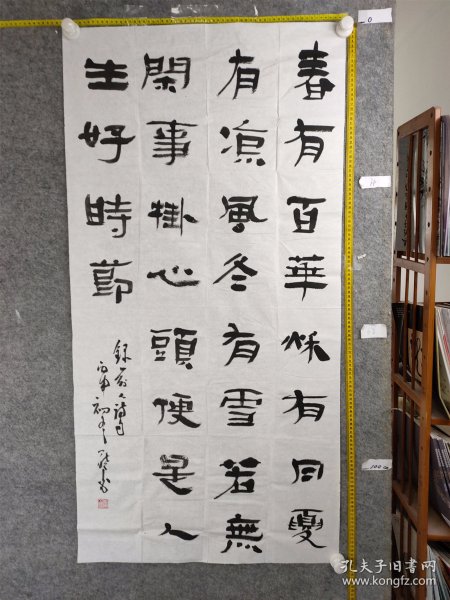 春有百華秋有月夏
有涼風冬有雪若無
閑事掛心頭便是人
生好時節
錄前人詩句
丙申初冬
0
100cm
孔夫子旧书网
www.kongfz.com